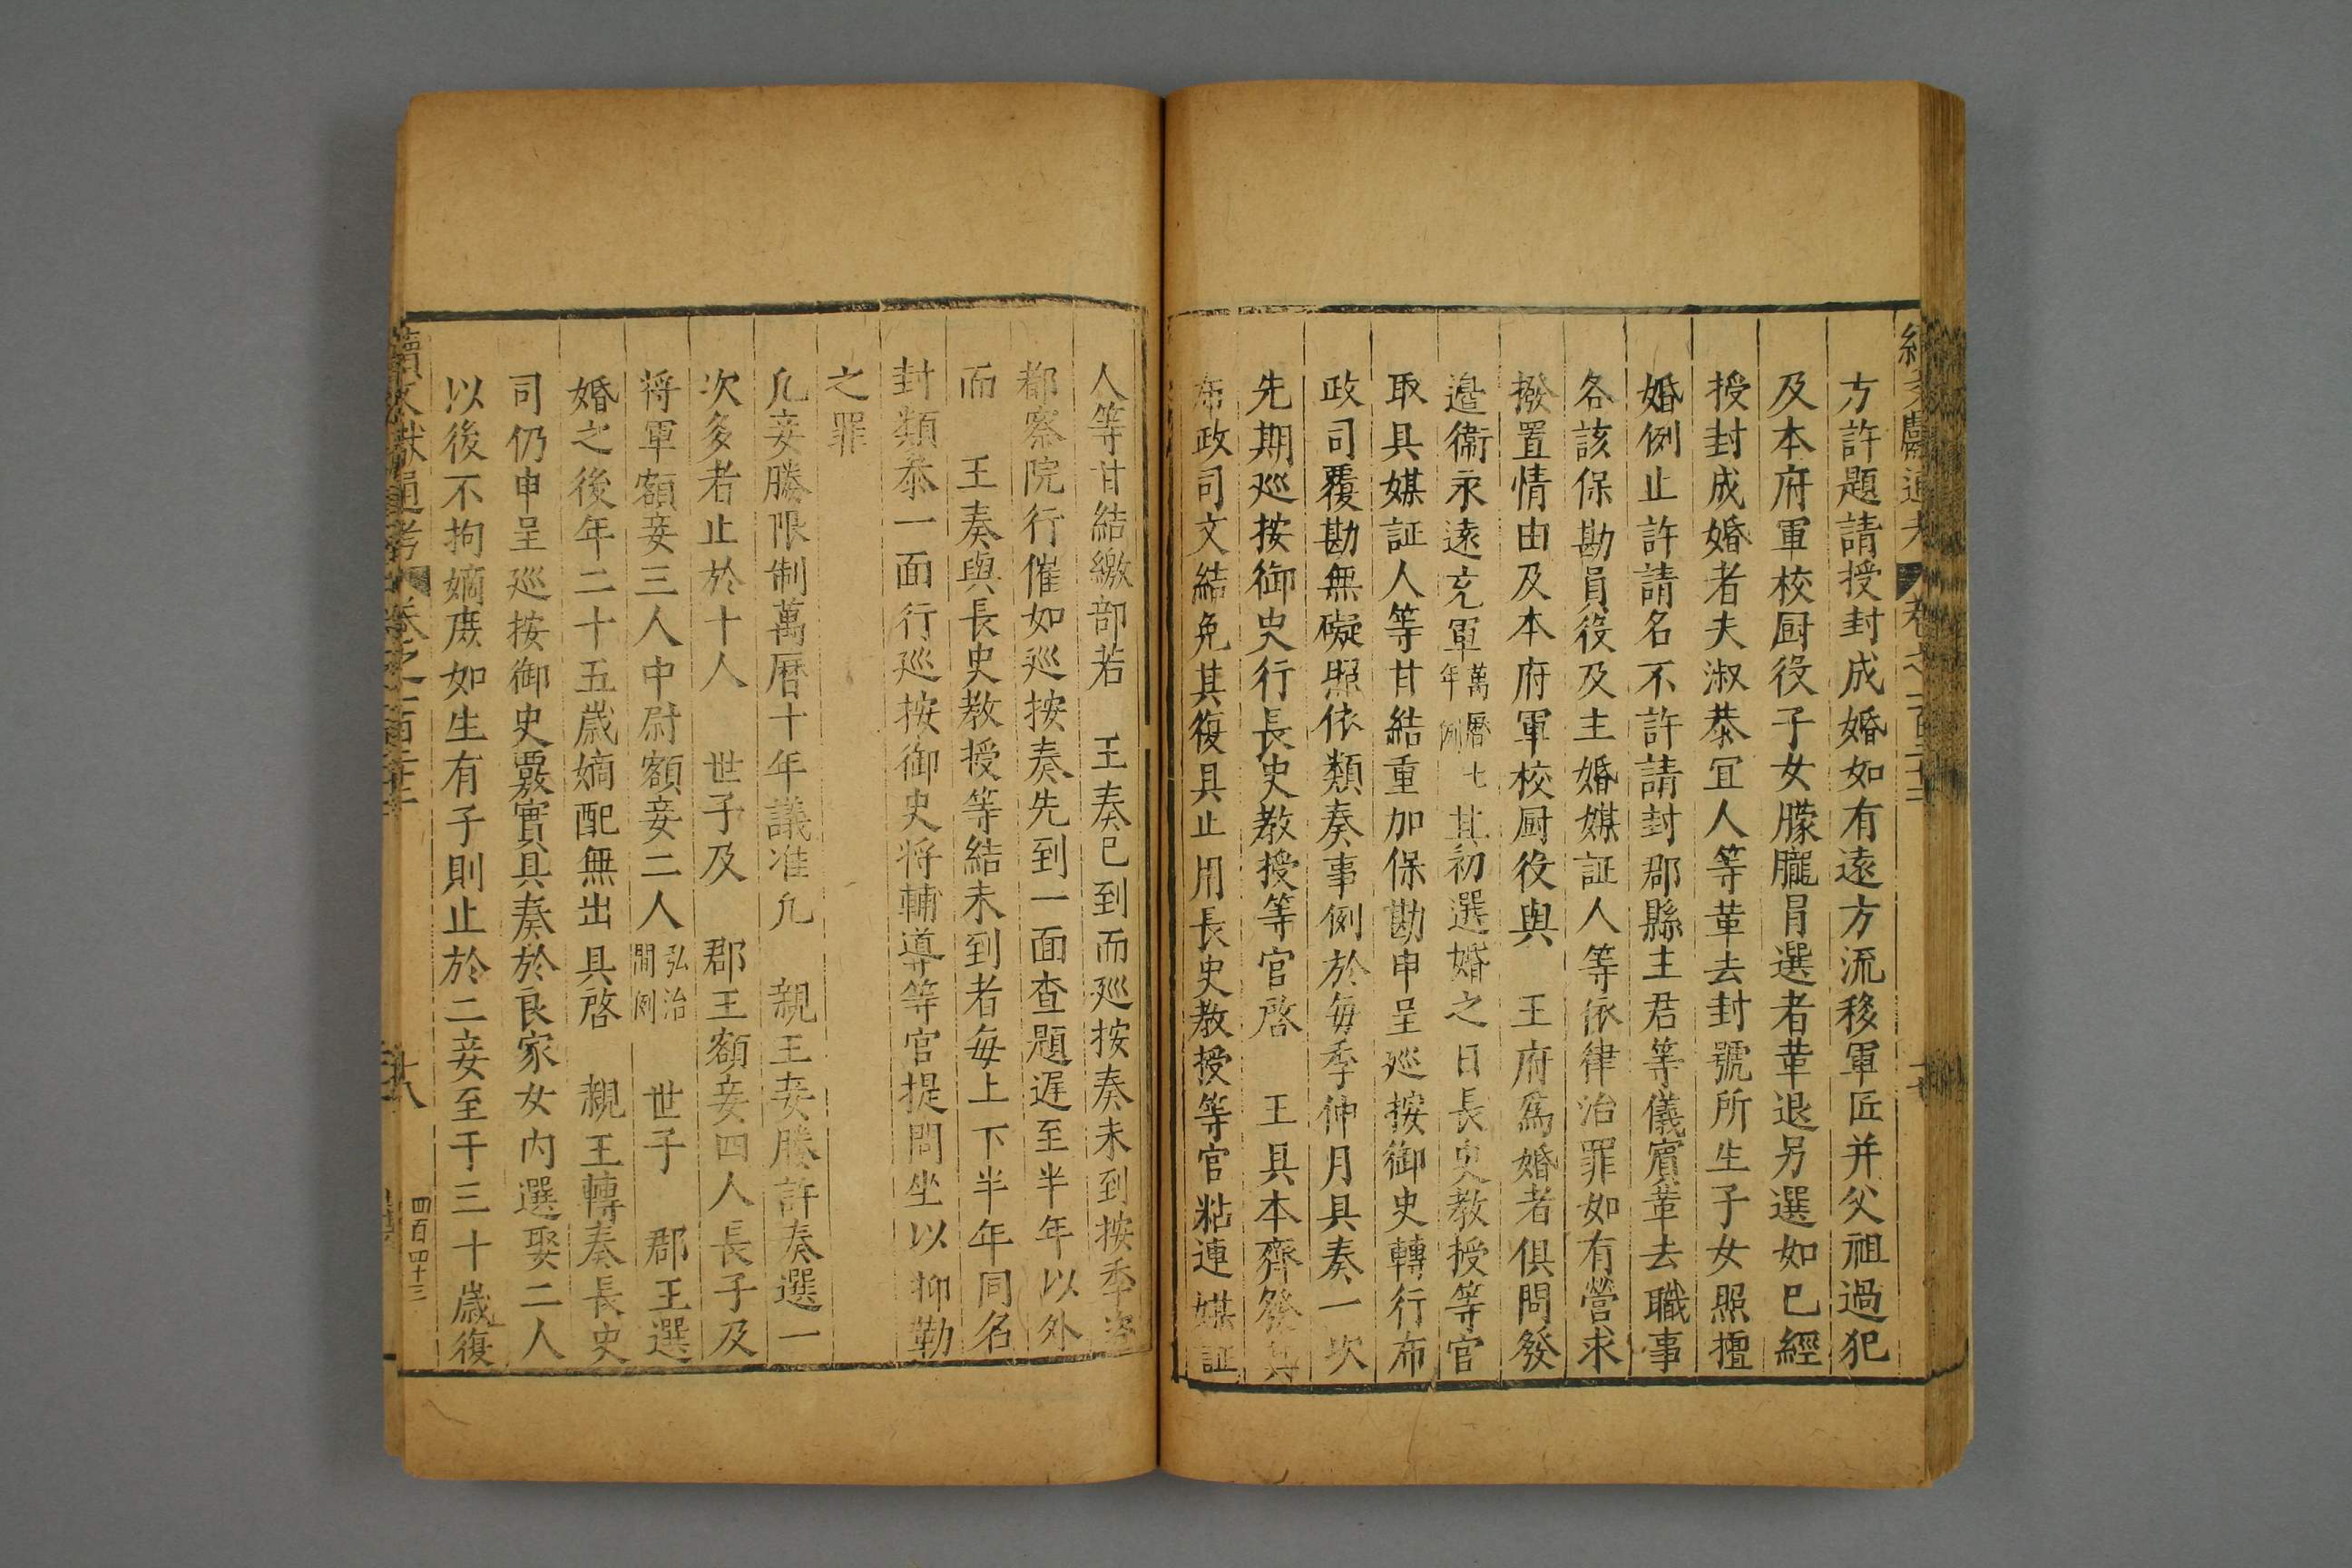 方許題請授封成婚如有遠方流移軍匠并父祖過犯
及本府軍校厨役子女朦朧冐選者革退另選如已經
授封成婚者夫淑恭宜人等革去封號所生子女照擅
婚例止許請名不許請封郡縣主君等儀賔革去職事
各該保勘員役及主婚媒証人等依律治罪如有營求
撥置情由及本府軍校厨役與　王府爲婚者俱問發
邉衞永遠充軍萬曆七年例其初選婚之日長史教授等官
取具媒証人等甘結重加保勘申呈廵按御史轉行布
政司覆勘無礙照依類奏事例於每季仲月具奏一次
先期廵按御史行長史教授等官啓　王具本齊發
布政司文結免其復具止用長史教授等官粘連媒証
人等甘結繳部若　王奏已到而廵按奏未到按季咨
都察院行催如廵按奏先到一面查題遲至半年以外
而　王奏與長史教授等結未到者每上下半年同名
封類叅一面行廵按御史将輔導等官提問坐以抑勒
之罪
凢妾媵限制萬曆十年議准凢　親王妾媵許奏選一
次多者止於十人　世子及　郡王額妾四人長子及
将軍額妾三人中尉額妾二人弘治間例　世子　郡王選
婚之後年二十五歲嫡配無出具啓　親王轉奏長史
司仍申呈廵按御史覈實具奏於良家女内選娶二人
以後不拘嫡庶如生有子則止於二妾至于三十歲復
續文獻通考　卷之二百
十八
四百四十三